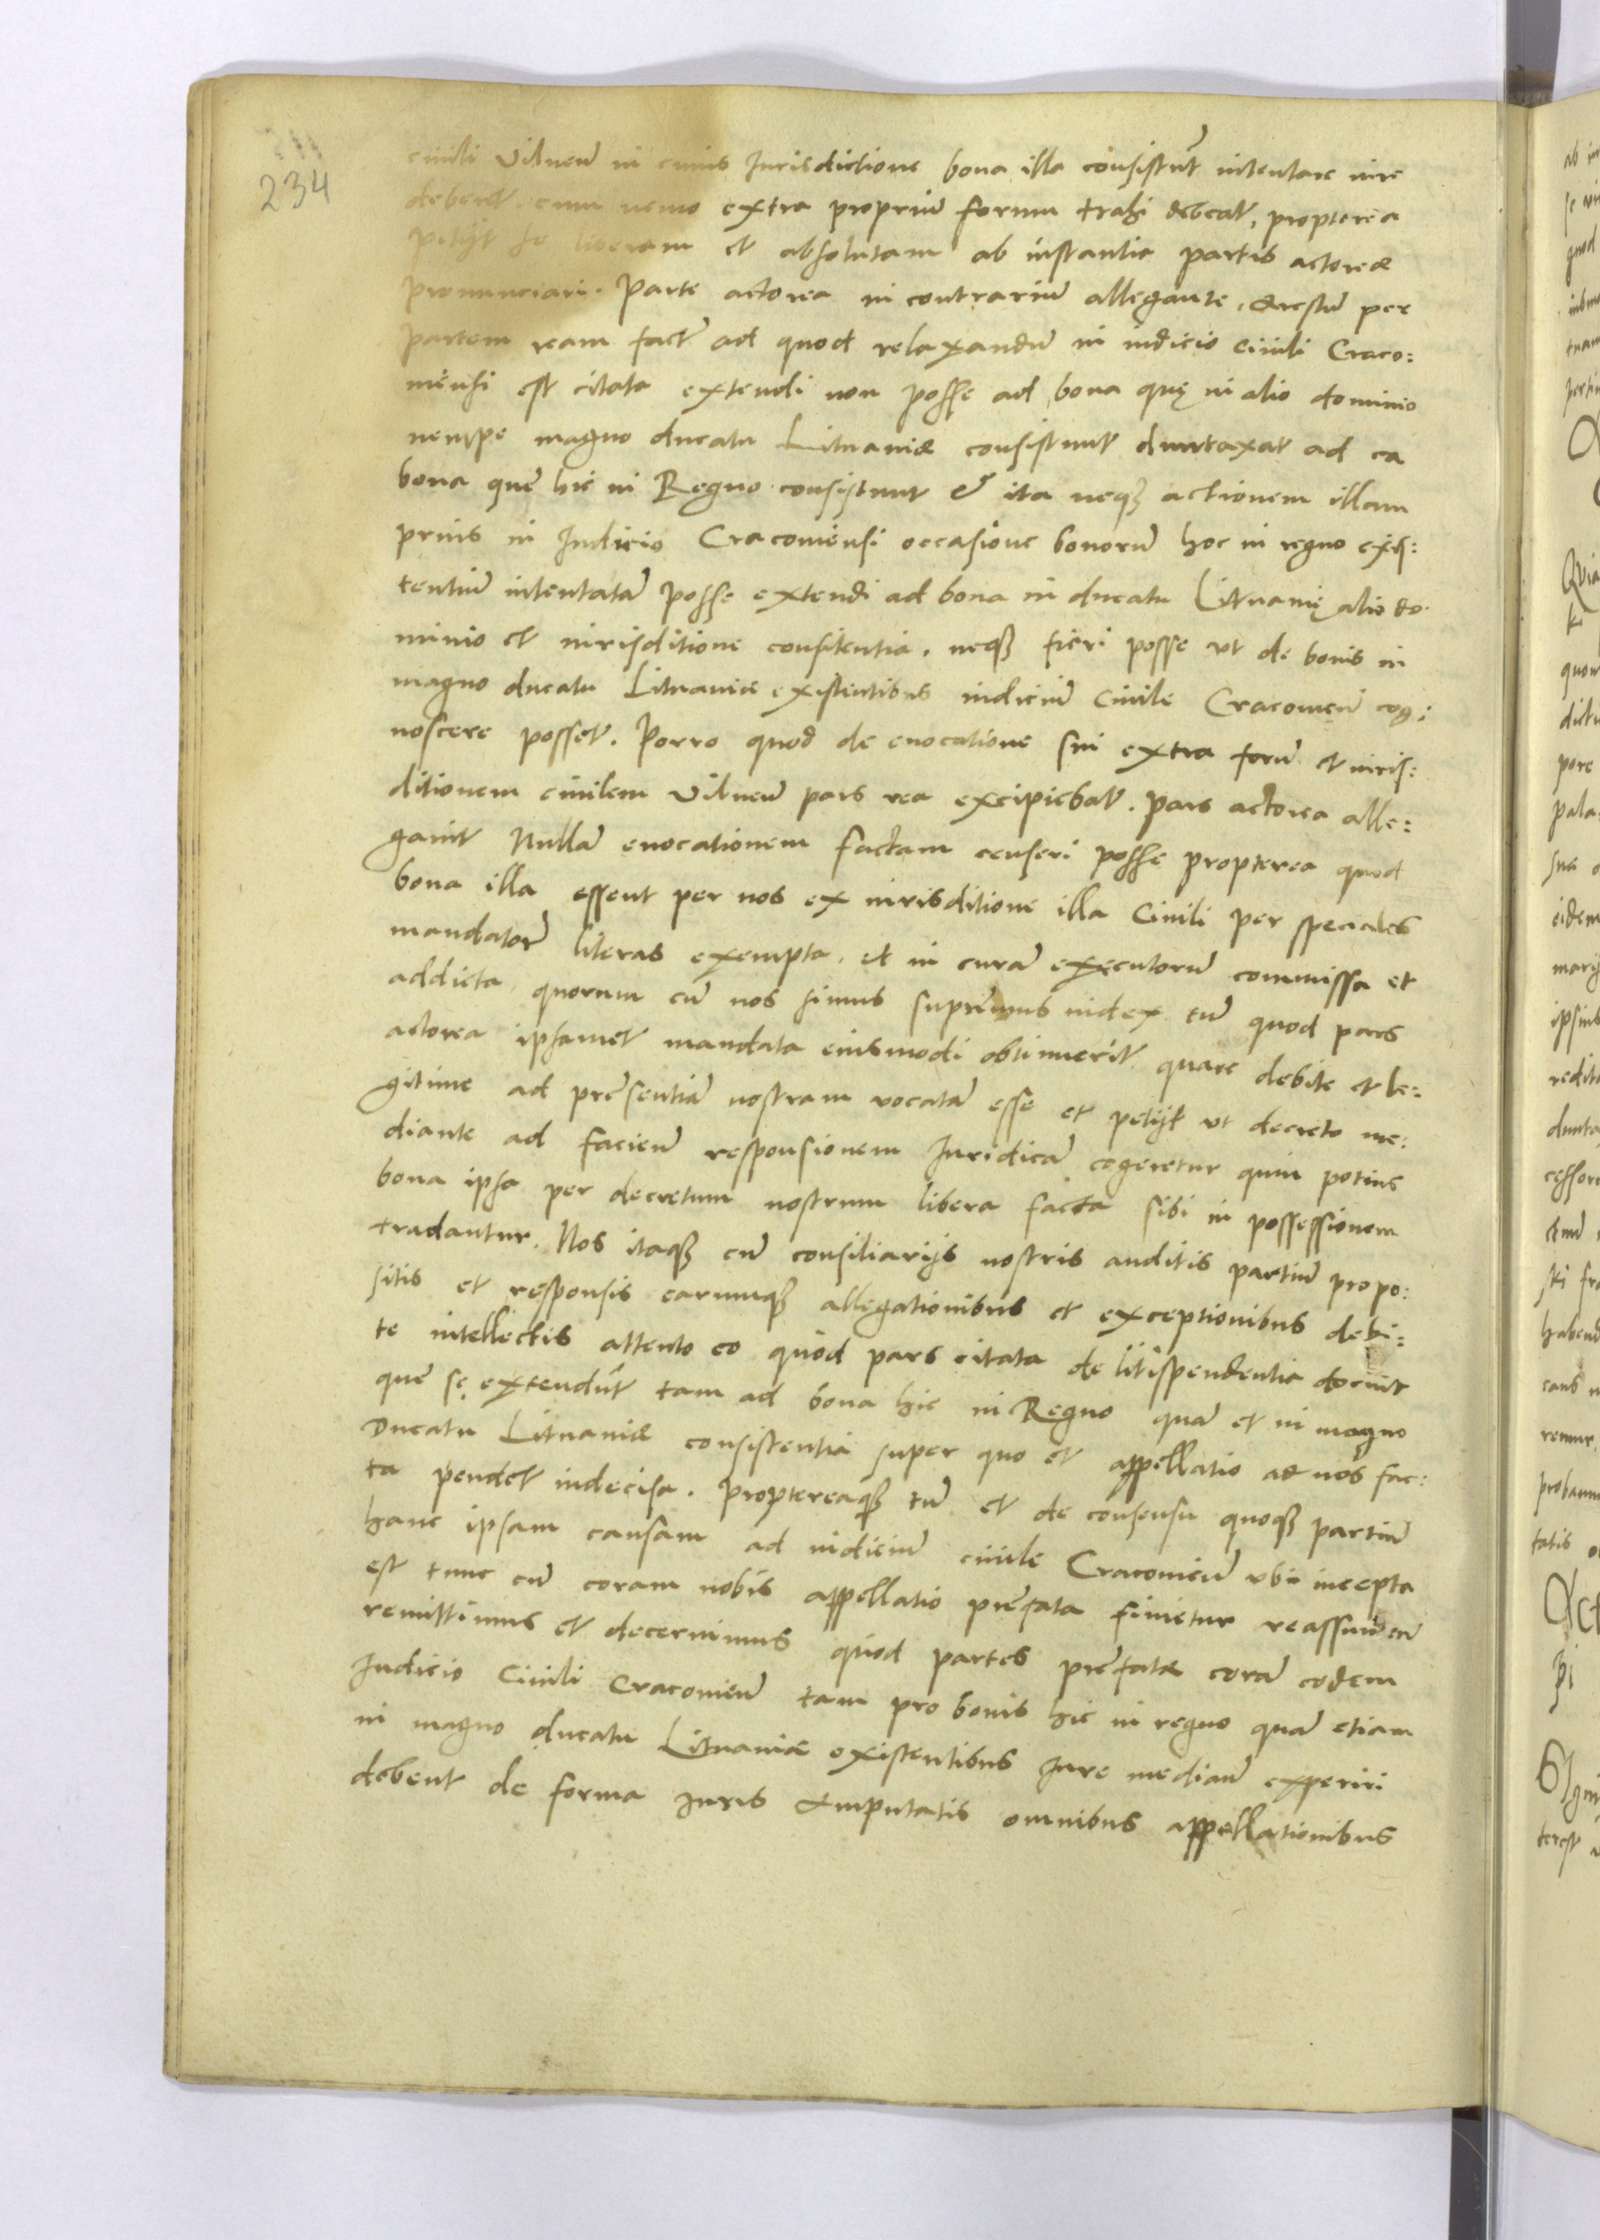 234
ciuili Vilnen̄ in cuius Jurisdictione bona illa consistūt intentare iure
deberet. cum nemo extra propriū forum trahi debeat, propterea
petijt se liberam et absolutam ab instantia partis actoreæ
pronunciari. Parte actorea in contrariū allegante, arestū per
partem ream factū ad quod relaxandū in iudicio ciuili Craco:
uiensi est citata extendi non posse ad bona quę in alio dominio
nempe magno ducatu Lituaniæ consistunt duntaxat ad ea
bona quæ hic in Regno consistunt & ita neqȝ actionem illam
prius in Judicio Cracouiensi occasione bonorū hoc in regno exis:
tentiū intentatā posse extendi ad bona in ducatu Lituanię alio do.
minio et iurisditione consitentia. neqȝ fieri posse vt de bonis in
magno ducatu Lituaniæ existentibus iudiciū Ciuile Cracouien̄ cog:
noscere posset. Porro quod de euocatione sui extra forū et iuris:
ditionem ciuilem Vilnen̄ pars rea excipiebat. Pars actorea alle:
gauit Nullā euocationem factam censeri posse propterea quod
bona illa essent per nos ex iurisditione illa Ciuili per speciales
mandatorū literas exempta, et in curā executorū commissa et
addicta, quorum cū nos simus supremus iudex tū quod pars
actorea ipsamet mandata eiusmodi obtinuerit quare debite et le:
gitime ad præsentiā nostram vocatā esse et petijt vt decreto me:
diante ad faciēn̄ responsionem Juridicā cogeretur quin potius
bona ipsa per decretum nostrum libera facta sibi in possessionem
tradantur. Nos itaqȝ cū consiliarijs nostris auditis partiū propo:
sitis et responsis earumqȝ allegationibus et exceptionibus debi:
te intellectis attento eo quod pars citata de litispendentia docuit
quæ sę extendūt tam ad bona hic in Regno quā et in magno
Ducatu Lituaniæ consistentia super quo et appellatio ad nos fac:
ta pendet indecisa. Proptereaqȝ tū et de consensu quoqȝ partiū
hanc ipsam causam ad iudiciū ciuile Cracouien̄ vbi incepta
est tunc cū coram nobis appellatio præfata finietur reassumen̄
remittimus et decernimus quod partes præfatæ corā eodem
Judicio Ciuili Cracouien̄ tam pro bonis hic in regno quā etiam
in magno ducatu Lituaniæ existentibus Jure median̄ experiri
debent de forma Juris amputatis omnibus appellationibus